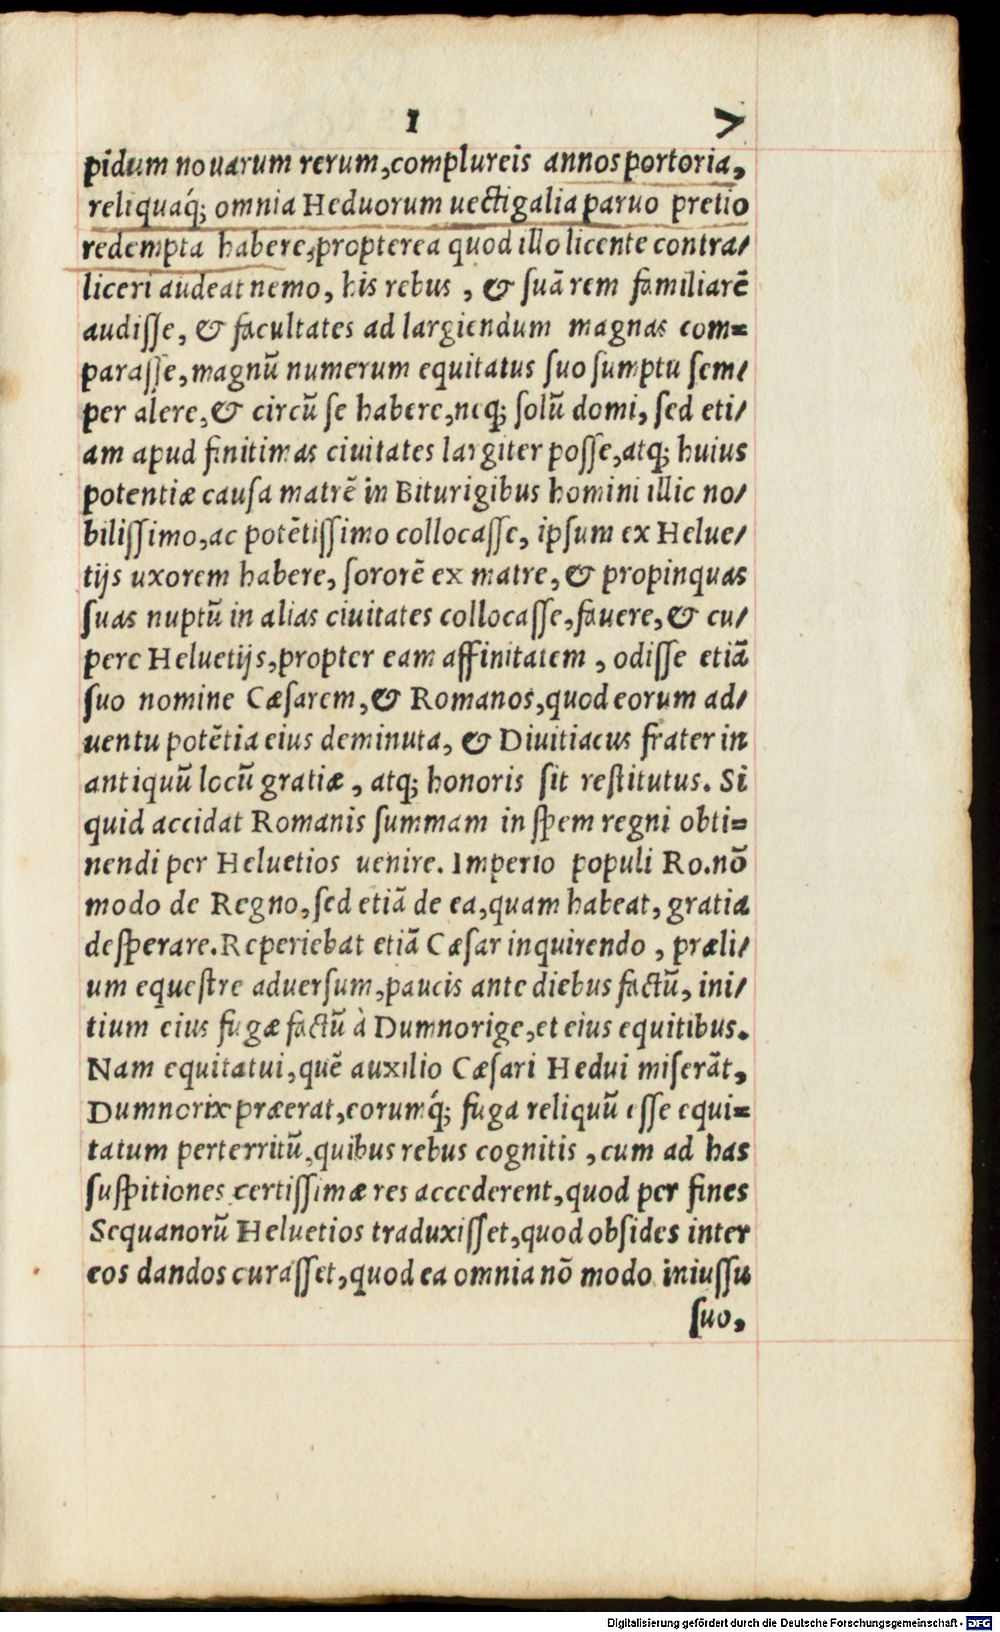 I 7
pidum nouarum rerum, complureis annos portoria,
reliquaq́; omnia Heduorum uectigalia paruo pretio
redempta habere, propterea quod illo licente contra/
liceri audeat nemo, his rebus, & suā rem familiarē
audisse, & facultates ad largiendum magnas com=
parasse, magnū numerum equitatus suo sumptu sem/
per alere, & circū se habere, neq; solū domi, sed eti/
am apud finitimas ciuitates largiter posse, atq; huius
potentiæ causa matrē in Biturigibus homini illic no/
bilissimo, ac potētissimo collocasse, ipsum ex Helue/
tijs uxorem habere, sororē ex matre, & propinquas
suas nuptū in alias ciuitates collocasse, fauere, & cu/
pere Heluetijs, propter eam affinitatem, odisse etiā
suo nomine Cæsarem, & Romanos, quod eorum ad/
uentu potētia eius deminuta, & Diuitiacus frater in
antiquū locū gratiæ, atq; honoris sit restitutus. Si
quid accidat Romanis summam in spem regni obti=
nendi per Heluetios uenire. Imperio populi Ro. nō
modo de Regno, sed etiā de ea, quam habeat, gratia
desperare. Reperiebat etiā Cæsar inquirendo, præli/
um equestre aduersum, paucis ante diebus factū, ini/
tium eius fugæ factū à Dumnorige, et eius equitibus.
Nam equitatui, quē auxilio Cæsari Hedui miserāt,
Dumnorix præerat, eorumq́; fuga reliquū esse equi=
tatum perterritū, quibus rebus cognitis, cum ad has
suspitiones certissimæ res accederent, quod per fines
Sequanorū Heluetios traduxisset, quod obsides inter
eos dandos curasset, quod ea omnia nō modo iniussu
suo,
Digitalisierung gefördert durch die Deutsche Forschungsgemeinschaft - DFG